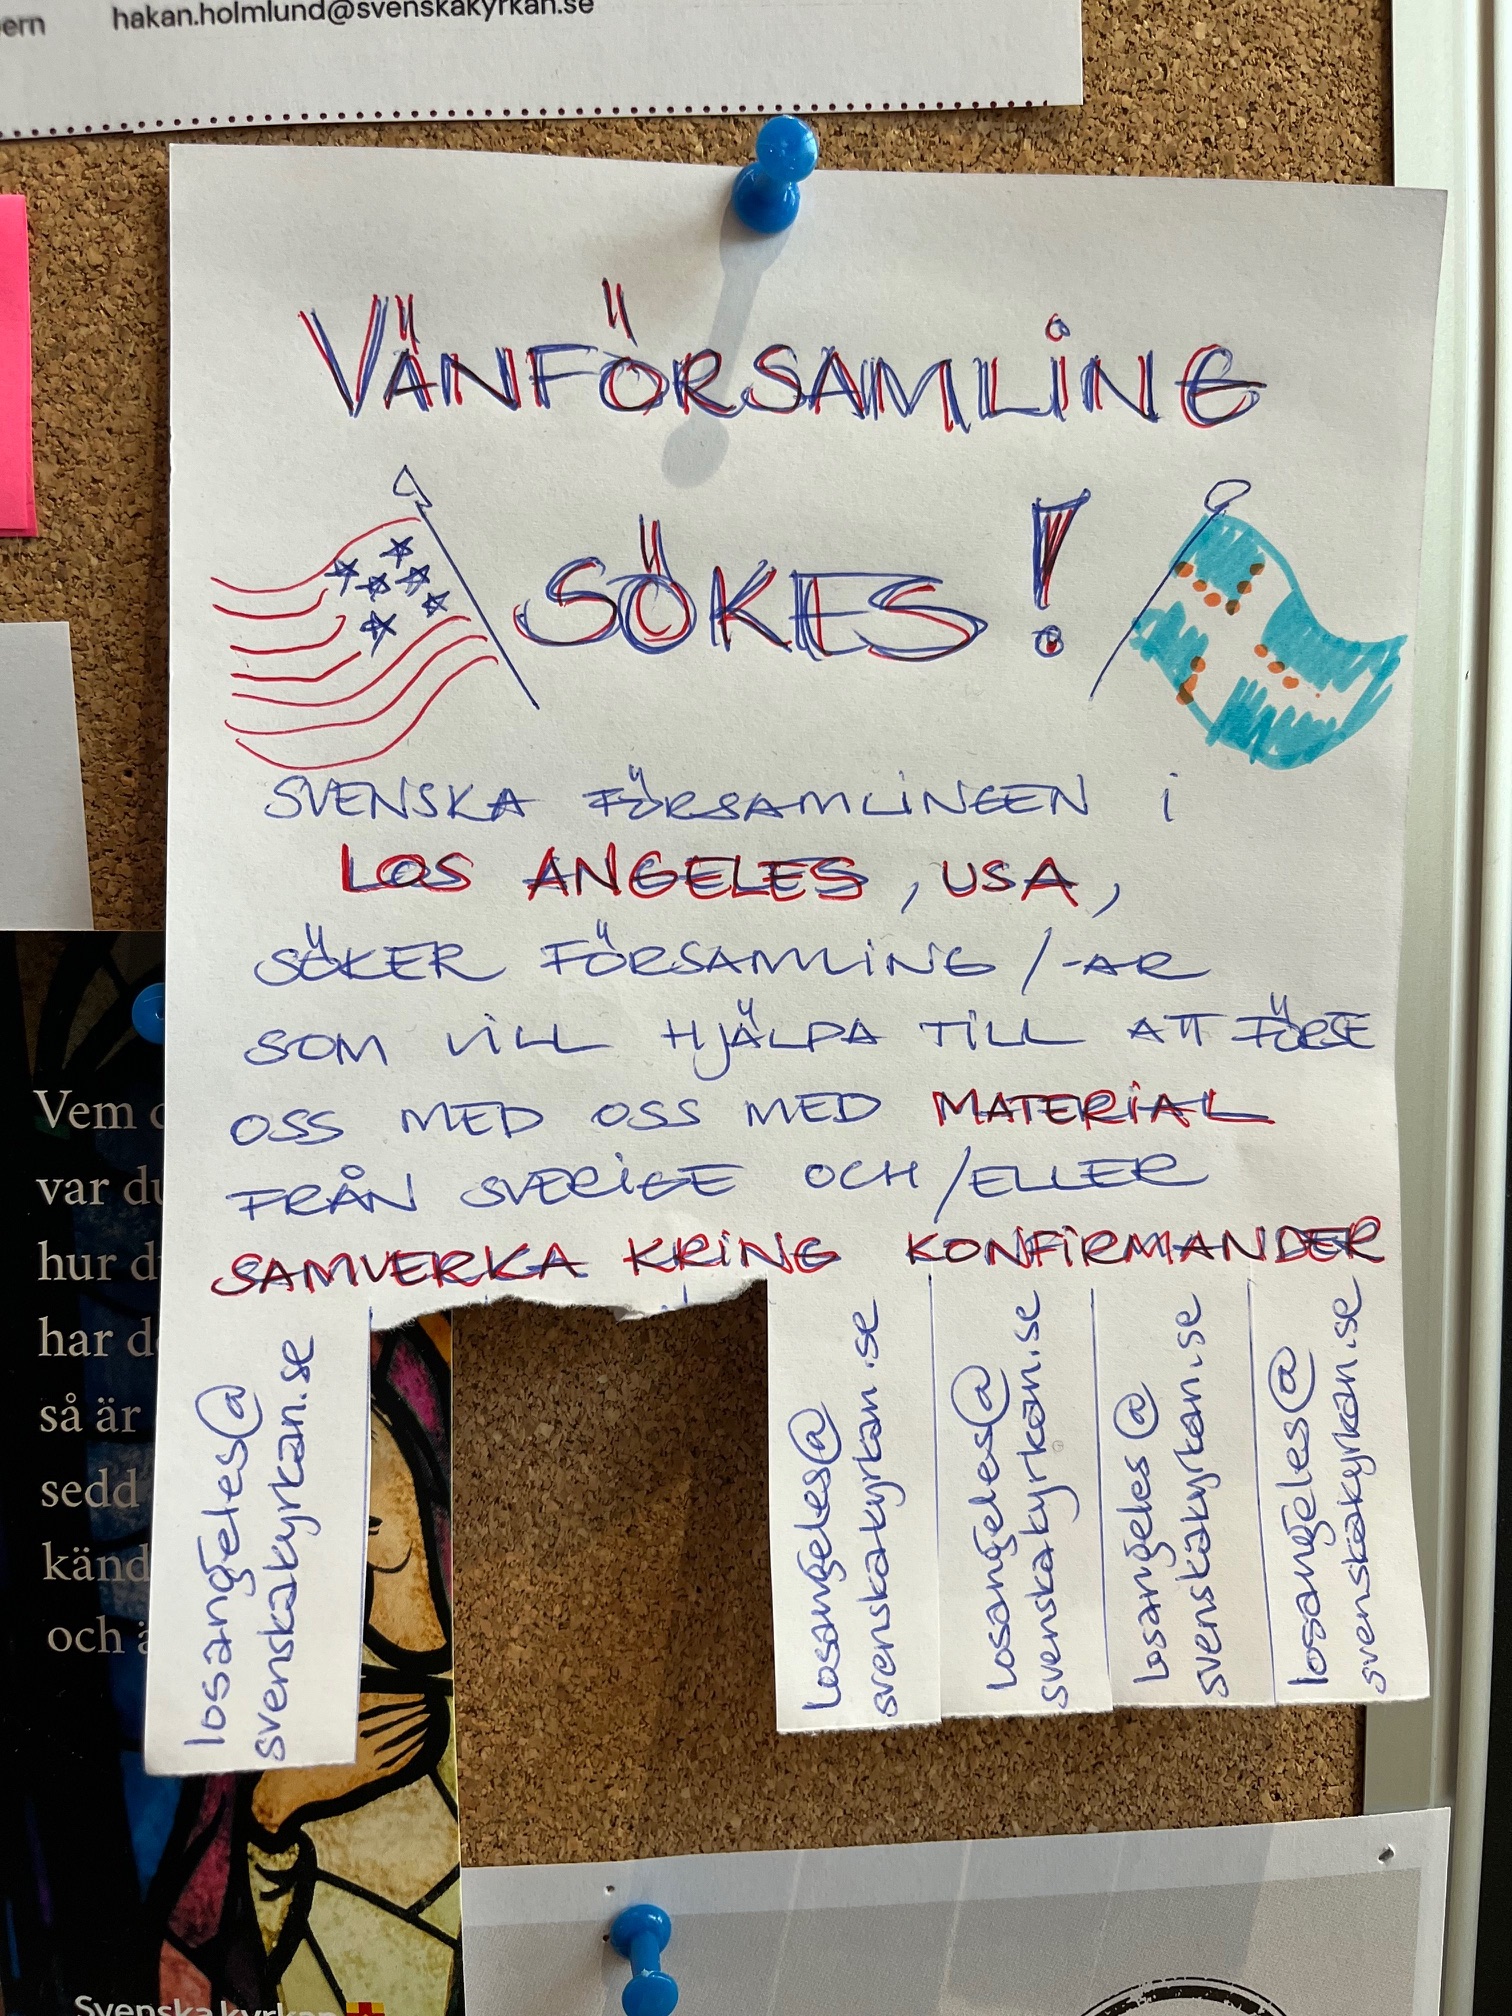 hakan.holmlund@svenskakyrkan.se
VÄNFÖRSAMLING
SÖKES!
SVENSKA FÖRSAMLINGEN i
LOS ANGELES, USA,
SÖKER FÖRSAMLING/-AR
SOM VILL HJÄLPA TILL ATT FÖRSE
OSS MED OSS MED MATERIAL
FRÅN SVERIGE OCH/ELLER
SAMVERKA KRING KONFIRMANDER
losangeles@
svenskakyrkan.se
losangeles@
svenskakyrkan.se
losangeles@
svenskakyrkan.se
losangeles@
svenskakyrkan.se
losangeles@
svenskakyrkan.se
Vem
var du
hur d
har d
så är
sedd
känd
och
Svenska kyrkan